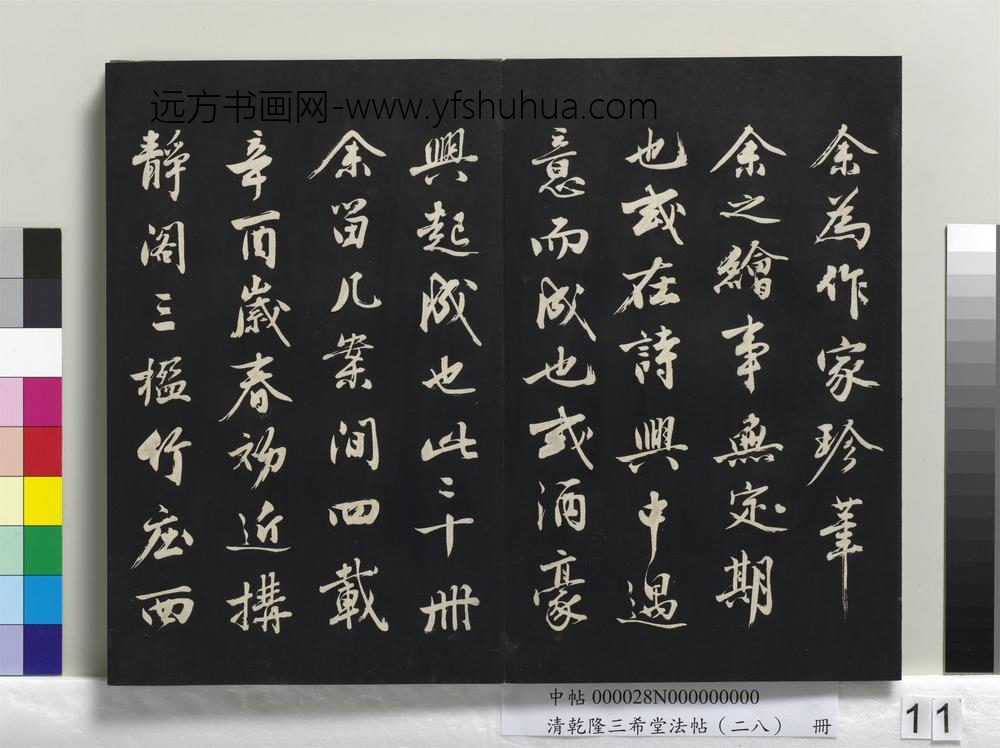 远方书画网-www.yfshuhua.com
余為作家珍筆
余之繪事無定期
也或在詩興中遇
意而成也或酒豪
興起成也此二十冊
余留几案間四載
辛酉歲春初近搆
靜閣三楹竹庄西
中帖 000028N000000000
清乾隆三希堂法帖（二八） 冊
11